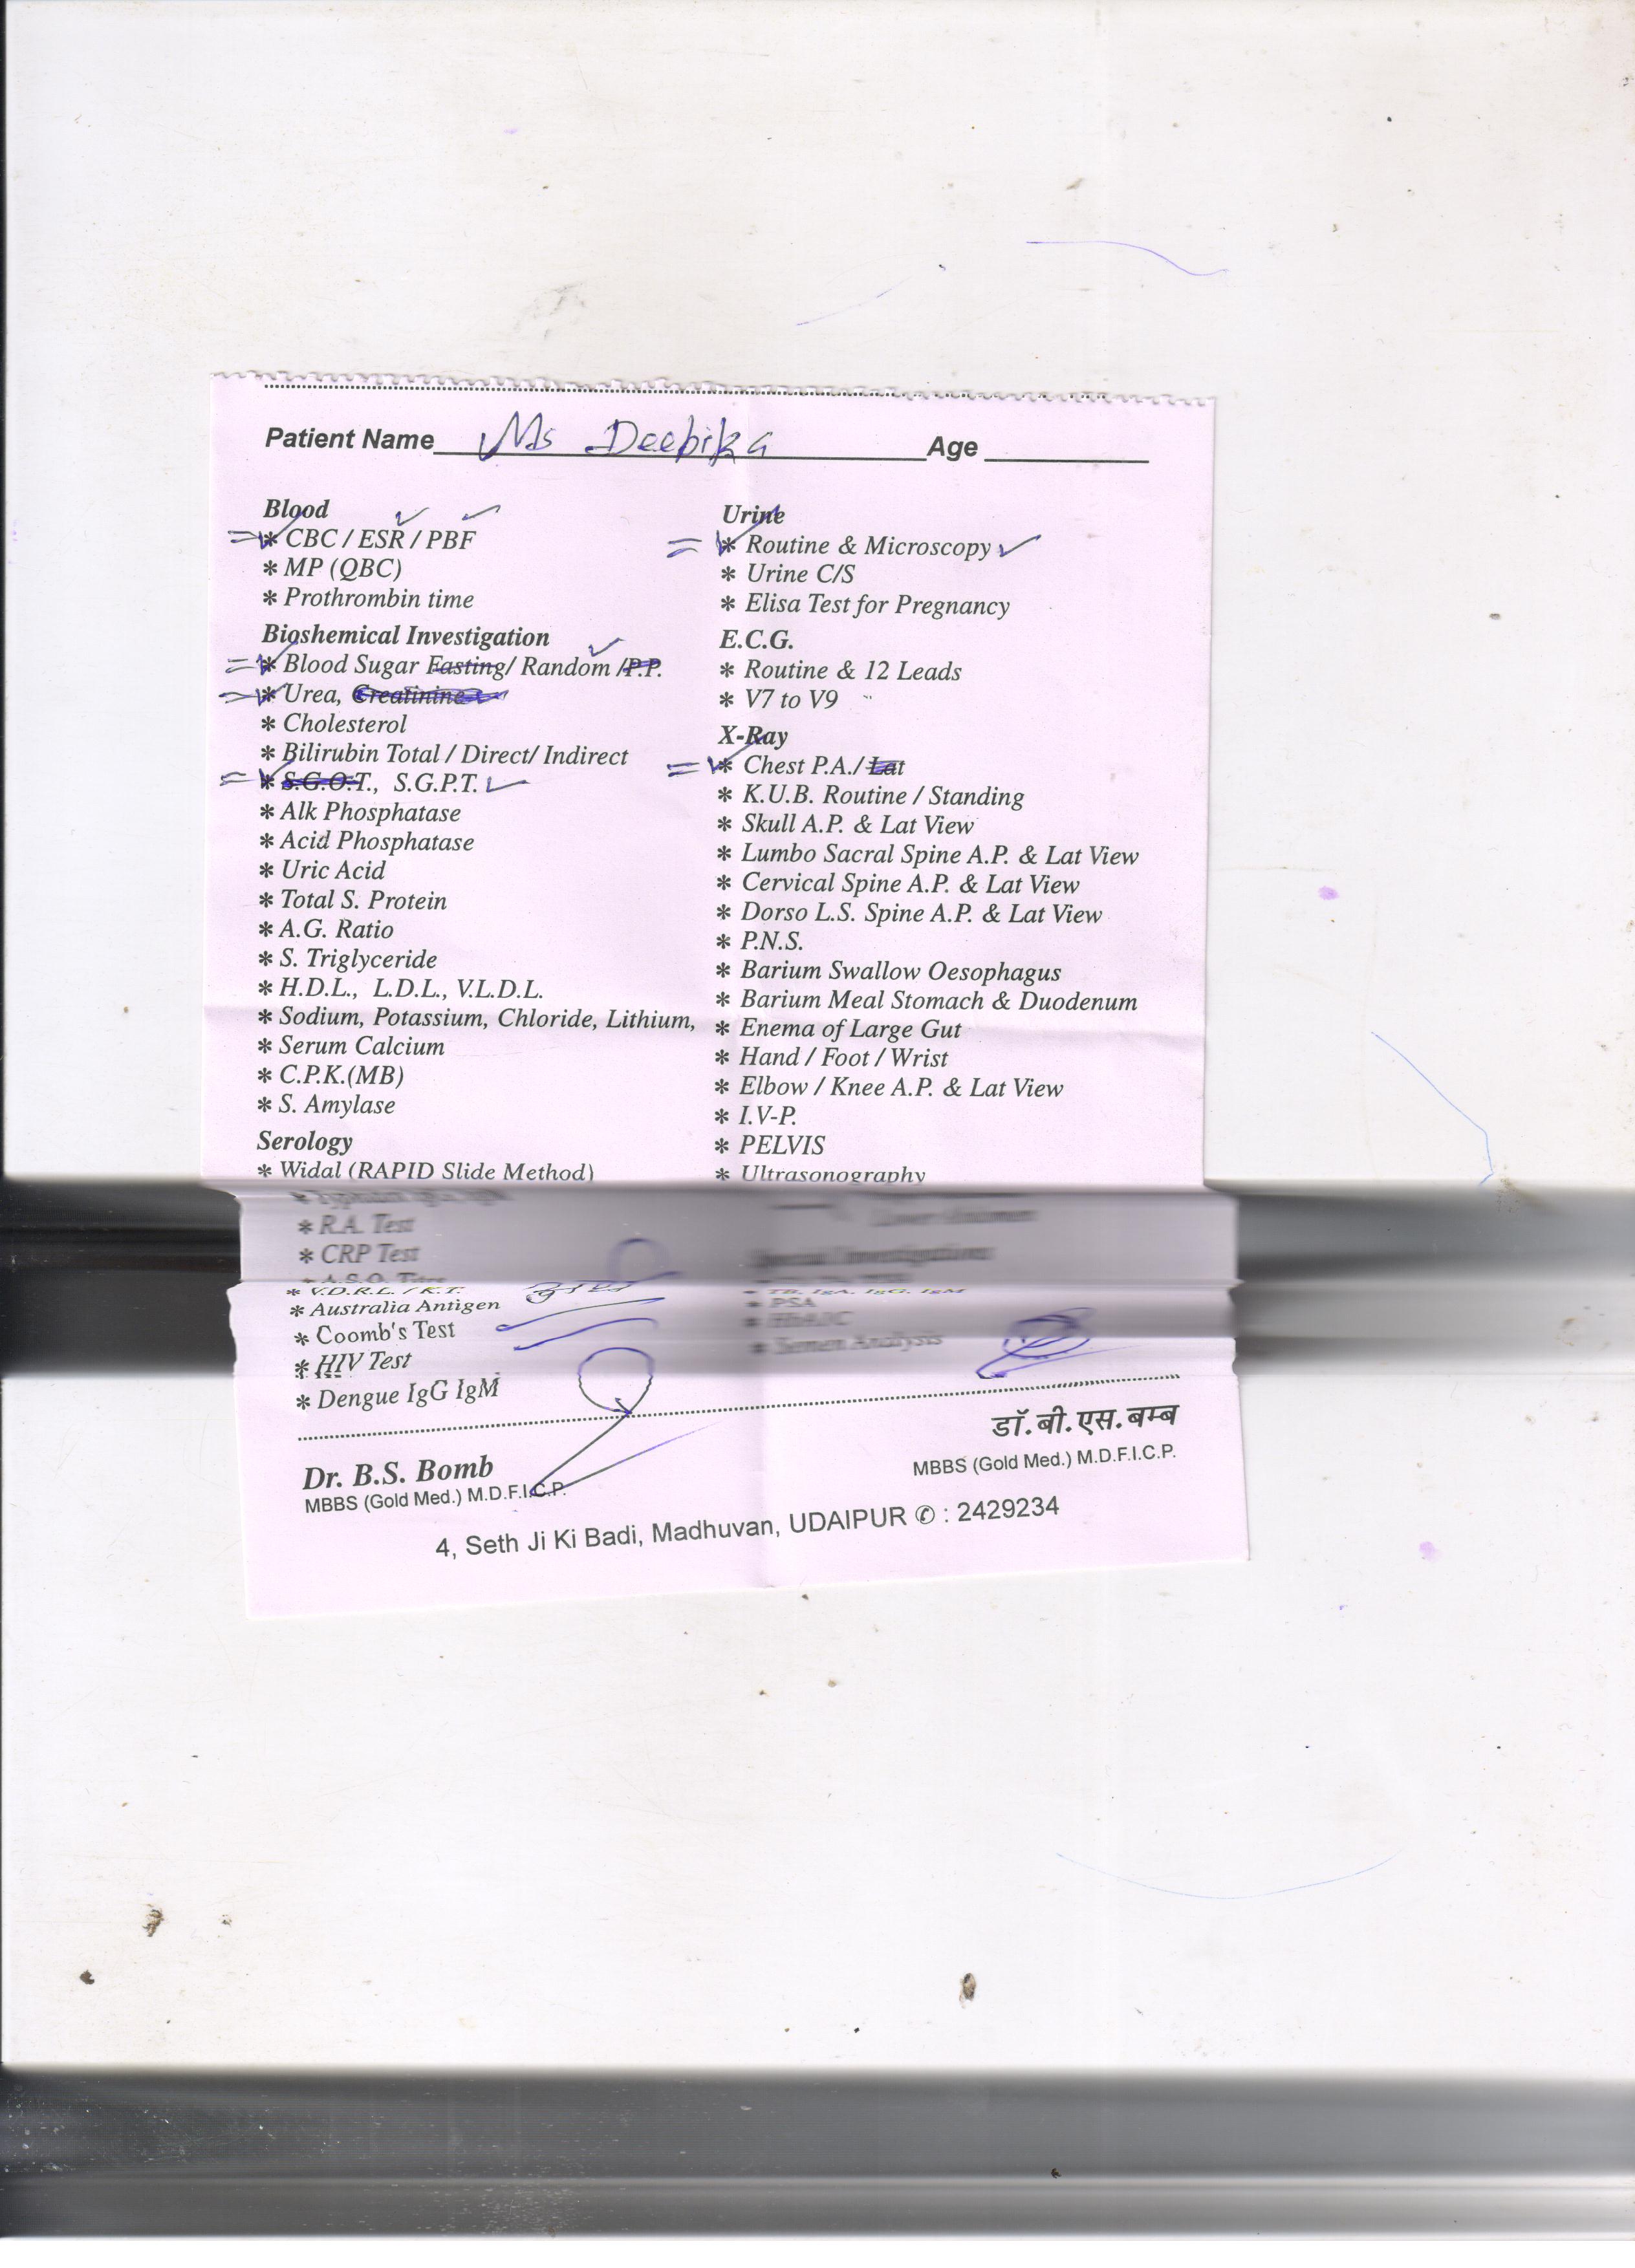 Patient Name Ms Deepika Age
Blood
* CBC / ESR / PBF
* MP (QBC)
* Prothrombin time
Bioshemical Investigation
* Blood Sugar Fasting/ Random /P.P.
* Urea, Creatinine
* Cholesterol
* Bilirubin Total / Direct/ Indirect
* S.G.O.T., S.G.P.T.
* Alk Phosphatase
* Acid Phosphatase
* Uric Acid
* Total S. Protein
* A.G. Ratio
* S. Triglyceride
* H.D.L., L.D.L., V.L.D.L.
* Sodium, Potassium, Chloride, Lithium,
* Serum Calcium
* C.P.K.(MB)
* S. Amylase
Serology
* Widal (RAPID Slide Method)
* R.A. Test
* CRP Test
* A.S.O. Titre
* V.D.R.L. / K.T.
* Australia Antigen
* Coomb's Test
* HIV Test
* Dengue IgG IgM
Urine
* Routine & Microscopy
* Urine C/S
* Elisa Test for Pregnancy
E.C.G.
* Routine & 12 Leads
* V7 to V9
X-Ray
* Chest P.A./ Lat
* K.U.B. Routine / Standing
* Skull A.P. & Lat View
* Lumbo Sacral Spine A.P. & Lat View
* Cervical Spine A.P. & Lat View
* Dorso L.S. Spine A.P. & Lat View
* P.N.S.
* Barium Swallow Oesophagus
* Barium Meal Stomach & Duodenum
* Enema of Large Gut
* Hand / Foot / Wrist
* Elbow / Knee A.P. & Lat View
* I.V-P.
* PELVIS
* Ultrasonography
Lower Abdomen
Special Investigations
* TB. IgA, IgG, IgM
* PSA
* HbA1C
* Semen Analysis
Dr. B.S. Bomb
MBBS (Gold Med.) M.D.F.I.C.P.
डॉ. बी. एस. बम्ब
MBBS (Gold Med.) M.D.F.I.C.P.
4, Seth Ji Ki Badi, Madhuvan, UDAIPUR ✆ : 2429234